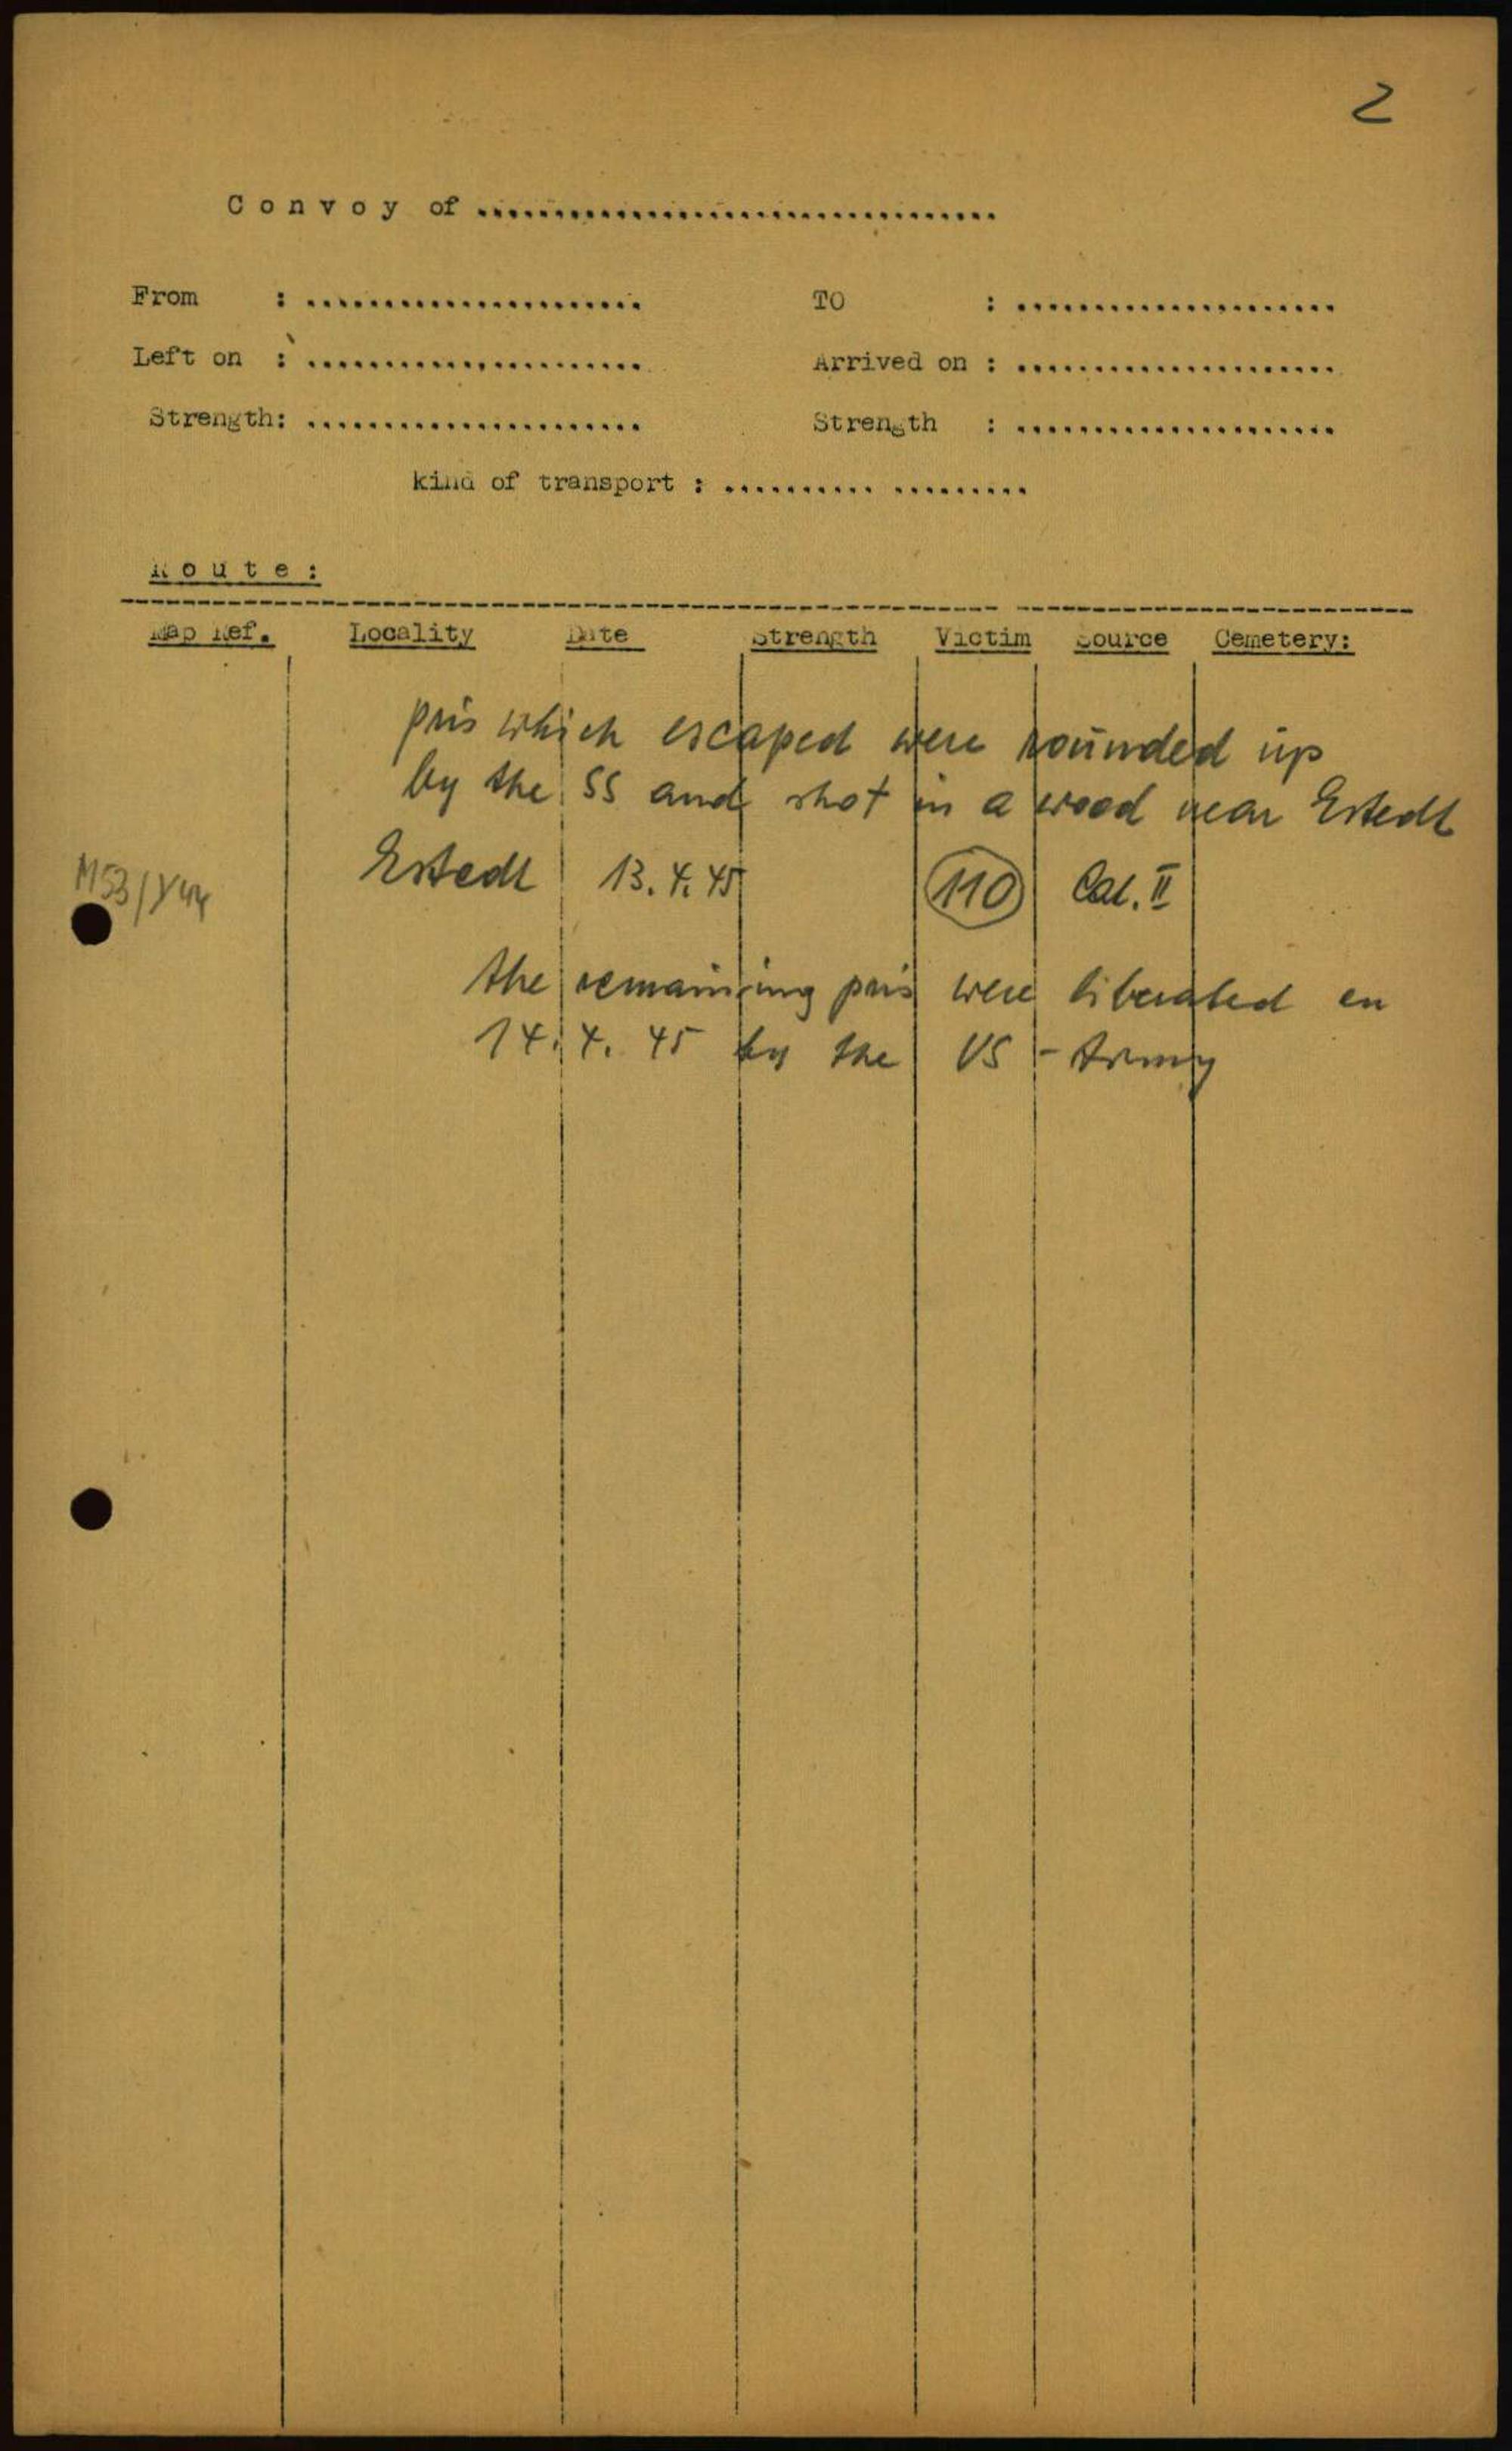 2
Convoy of ..................................
From : ...................... TO : .....................
Left on : ...................... Arrived on : .....................
Strength: ...................... Strength : .....................
kind of transport : .......... .........
Route:
Map Ref. Locality Date Strength Victim Source Cemetery:
pris which escaped were rounded up
by the SS and shot in a wood near Estedt
M53/Y44 Estedt 13.4.45 110 Cal. II
the remaining pris were liberated en
14.4.45 by the US-Army